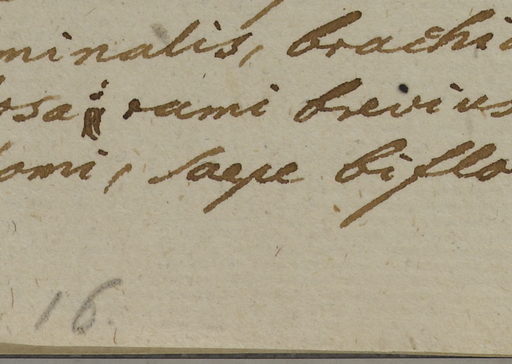 minalis, brachi
osa; rami brevius
tomi, saepe biflo
16.